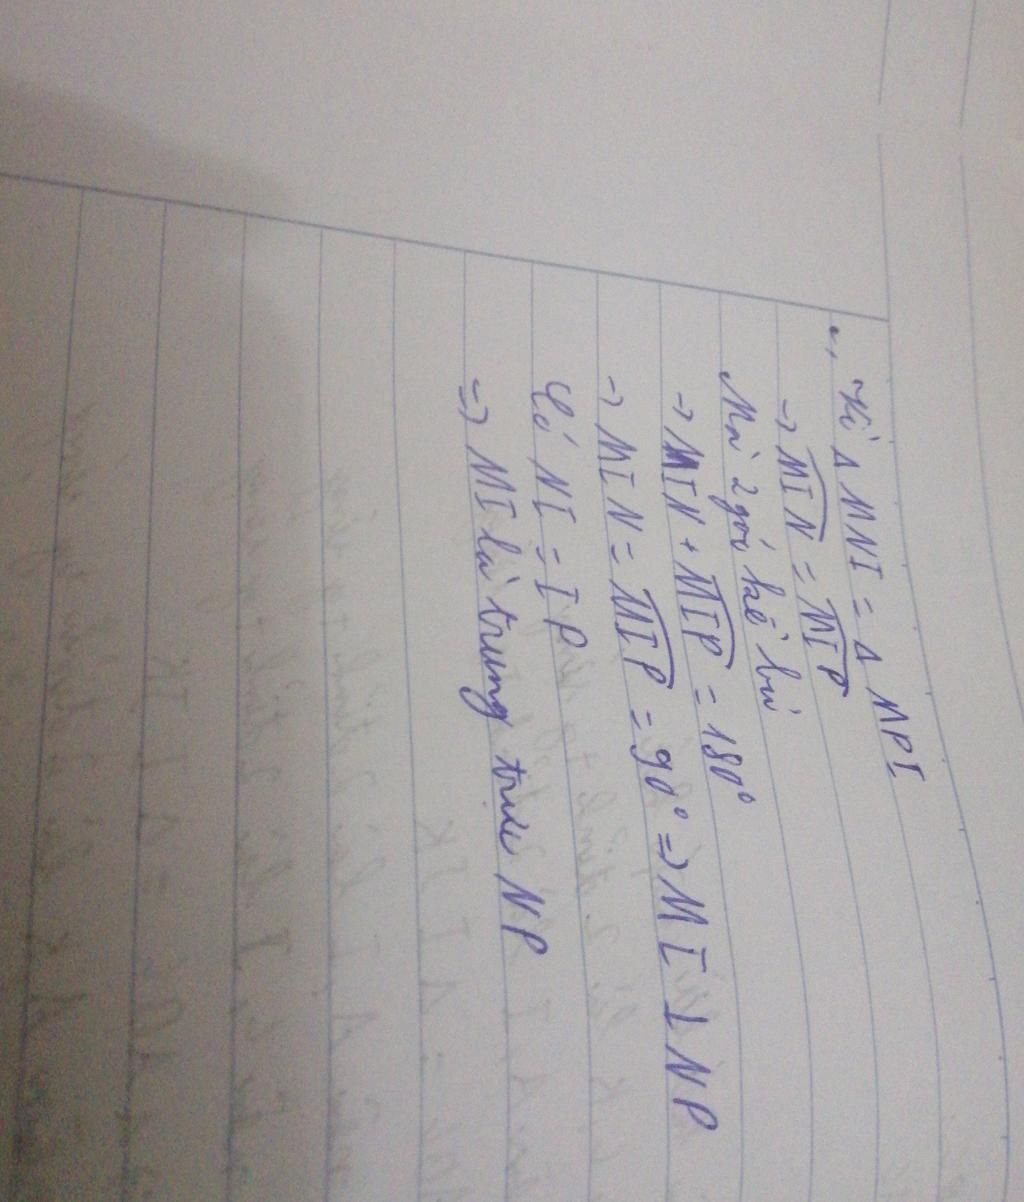 Vì Δ MNI = Δ MPI
→ MIN = MIP
Mà 2 góc kề bù
→ MIN + MIP = 180°
→ MIN = MIP = 90° => MI ⊥ NP
Có NI = IP
=> MI là trung trực NP